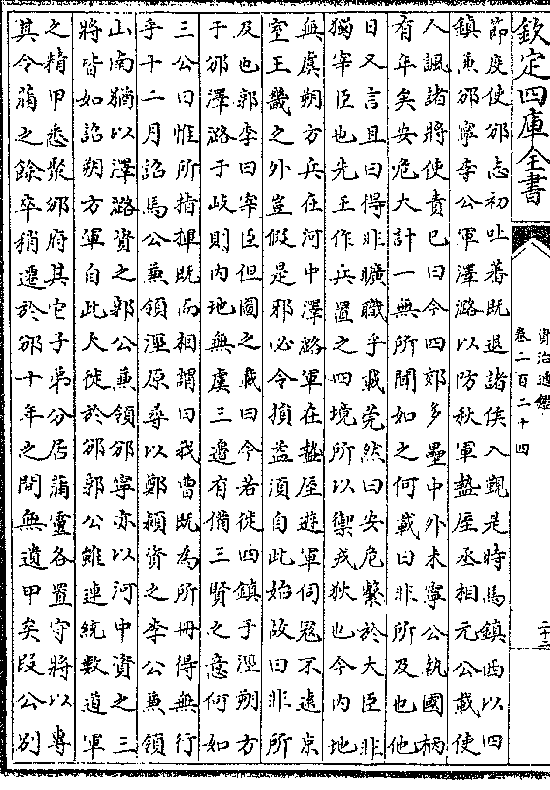 欽定四庫全書
資治通鑑
卷二百二十四
二十三
節度使邠志初吐蕃既退諸侯入覲是時馬鎮西以四
鎮兼邠寧李公軍澤潞以防秋軍盩厔丞相元公載使
人諷諸將使責已曰今四郊多壘中外未寧公執國柄
有年矣安危大計一無所聞如之何載曰非所及也他
日又言且曰得非曠職乎載莞然曰安危繫於大臣非
獨宰臣也先王作兵置之四境所以禦戎狄也今内地
無虞朔方兵在河中澤潞軍在盩厔遊軍伺冦不逺京
室王畿之外豈假是邪必令損益須自此始故曰非所
及也郭李曰宰臣但圖之載曰今若徙四鎮于涇朔方
于邠澤潞于岐則内地無虞三邉有備三賢之意何如
三公曰惟所指揮既而相謂曰我曹既為所册得無行
乎十二月詔馬公兼領涇原尋以鄭潁資之李公兼領
山南猶以澤潞資之郭公兼領邠寧亦以河中資之三
將皆如詔朔方軍自此大徙於邠郭公雖連統數道軍
之精甲悉聚邠府其它子弟分居蒲靈各置守將以專
其令蒲之餘卒稍遷於邠十年之間無遺甲矣段公别